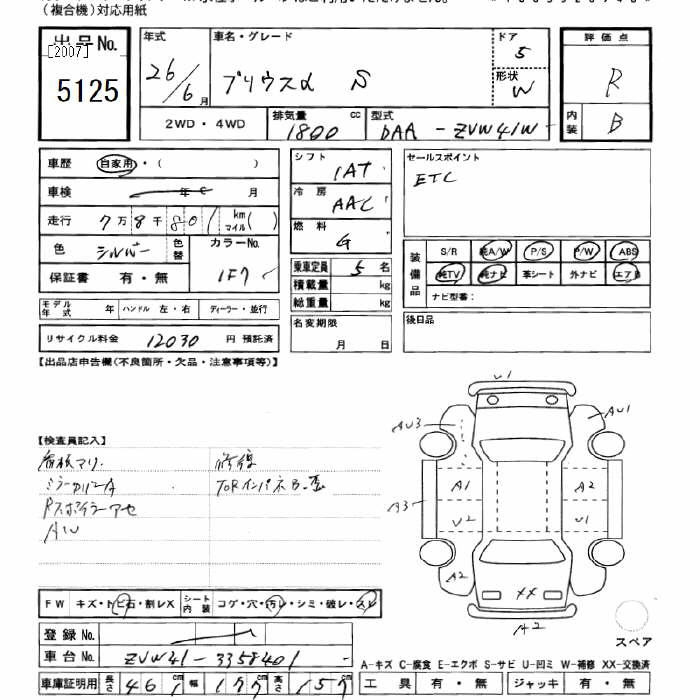 (複合機)対応用紙
出品No.
[2007]
5125
年式
26/6月
車名・グレード
プリウスα S
ドア
5
形状
W
評価点
R
内装
B
2WD・4WD
排気量 cc
1800
型式
DAA-ZVW41W-
車歴 自家用・( )
車検 年 月
走行 7万8千801 kmマイル( )
色 シルバー 色替
カラーNo.
1F7
保証書 有・無
シフト
1AT
冷房
AAC
燃料
G
乗車定員 5名
積載量 kg
総重量 kg
セールスポイント
ETC
装備品
S/R 純A/W P/S P/W ABS
純TV 純ナビ 革シート 外ナビ エアB
ナビ型番:
モデル年式 年 ハンドル 左・右 ディーラー・並行
リサイクル料金 12030 円 預託済
名変期限
月 日
後日品
【出品店申告欄(不良箇所・欠品・注意事項等)】
【検査員記入】
看板マリ.
ミラーカバーA
Rスポイラーアセ
AW
修復
TORインパネB.歪
U1
AU3
AU1
A1
A2
A3
U2
U1
A2
XX
A2
スペア
FW キズ・トビ石・割レX シート内装 コゲ・穴・汚レ・シミ・破レ・スレ
登録No.
車台No. ZVW41-3358401
車庫証明用 長さ 461 幅 177 高さ 157
A-キズ C-腐食 E-エクボ S-サビ U-凹ミ W-補修 XX-交換済
工具 有・無 ジャッキ 有・無